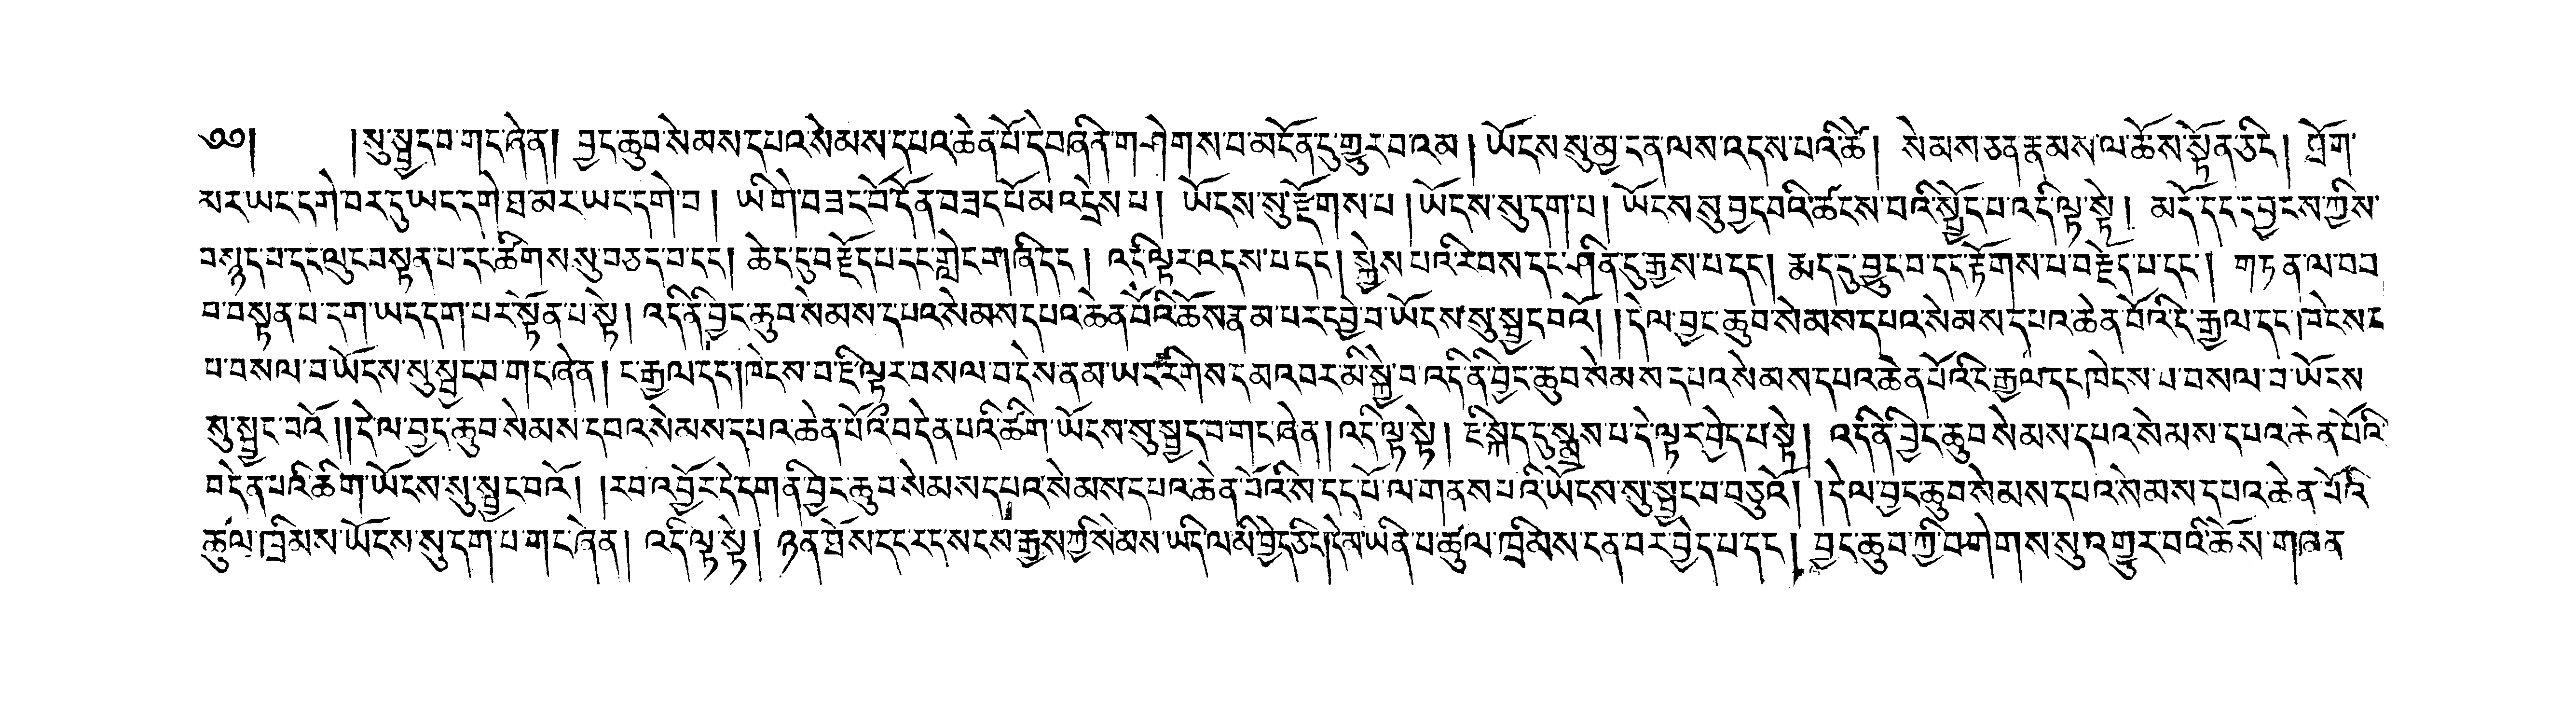 ༄༅། །སུ་སྦྱང་བ་གང་ཞེ་ན། བྱང་ཆུབ་སེམས་དཔའ་སེམས་དཔའ་ཆེན་པོ་དེ་བཞིན་གཤེགས་པ་མངོན་དུ་གྱུར་བ་འམ། ཡོངས་སུ་མྱ་ངན་ལས་འདས་པའི་ཚེ། སེམས་ཅན་རྣམས་ལ་ཆོས་སྟོན་ཅིང་། ཐོག་
མར་ཡང་དགེ་བར་དུ་ཡང་དགེ་ཐ་མར་ཡང་དགེ་བ། ཡི་གེ་བཟང་པོ་དོན་བཟང་པོ་མ་འདྲེས་པ། ཡོངས་སུ་རྫོགས་པ། ཡོངས་སུ་དག་པ། ཡོངས་སུ་བྱང་བའི་ཚངས་པའི་སྤྱོད་པ་འདི་ལྟ་སྟེ། མདོ་དང་དབྱངས་ཀྱིས་
བསྙད་པ་དང་ལུང་བསྟན་པ་དང་ཚིགས་སུ་བཅད་པ་དང་། ཆེད་དུ་བརྗོད་པ་དང་གླེང་གཞི་དང་། འདི་ལྟར་འདས་པ་དང་། སྐྱེས་པའི་རབས་དང་ཤིན་ཏུ་རྒྱས་པ་དང་། རྨད་དུ་བྱུང་བ་དང་རྟོགས་པ་བརྗོད་པ་དང་། གཏན་ལ་བབ་
པ་བསྟན་པ་དག་ཡང་དག་པར་སྟོན་པ་སྟེ། འདི་ནི་བྱང་ཆུབ་སེམས་དཔའ་སེམས་དཔའ་ཆེན་པོའི་ཆོས་རྣམ་པར་དབྱེ་བ་ཡོངས་སུ་སྦྱང་བའོ། །དེ་ལ་བྱང་ཆུབ་སེམས་དཔའ་སེམས་དཔའ་ཆེན་པོའི་ང་རྒྱལ་དང་། ཁེངས་
པ་བསལ་བ་ཡོངས་སུ་སྦྱང་བ་གང་ཞེ་ན། ང་རྒྱལ་དང་། ཁེངས་པ་ཇི་ལྟར་བསལ་བ་དེས་ནམ་ཡང་རིགས་དམའ་བར་མི་སྐྱེ་བ་འདི་ནི་བྱང་ཆུབ་སེམས་དཔའ་སེམས་དཔའ་ཆེན་པོའི་ང་རྒྱལ་དང་ཁེངས་པ་བསལ་བ་ཡོངས་
སུ་སྦྱང་བའོ། །དེ་ལ་བྱང་ཆུབ་སེམས་དཔའ་སེམས་དཔའ་ཆེན་པོའི་བདེན་པའི་ཚིག་ཡོངས་སུ་སྦྱང་བ་གང་ཞེ་ན། འདི་ལྟ་སྟེ། ཇི་སྐད་དུ་སྨྲས་པ་དེ་ལྟར་བྱེད་པ་སྟེ། འདི་ནི་བྱང་ཆུབ་སེམས་དཔའ་སེམས་དཔའ་ཆེན་པོའི་
བདེན་པའི་ཚིག་ཡོངས་སུ་སྦྱང་བའོ། །རབ་འབྱོར་དེ་དག་ནི་བྱང་ཆུབ་སེམས་དཔའ་སེམས་དཔའ་ཆེན་པོའི་ས་དང་པོ་ལ་གནས་པའི་ཡོངས་སུ་སྦྱང་བ་བཅུའོ། །དེ་ལ་བྱང་ཆུབ་སེམས་དཔའ་སེམས་དཔའ་ཆེན་པོའི་
ཚུལ་ཁྲིམས་ཡོངས་སུ་དག་པ་གང་ཞེ་ན། འདི་ལྟ་སྟེ། ཉན་ཐོས་དང་རང་སངས་རྒྱས་ཀྱི་སེམས་ཡིད་ལ་མི་བྱེད་ཅིང་། དེ་མ་ཡིན་པ་ཚུལ་ཁྲིམས་ངན་པར་བྱེད་པ་དང་། བྱང་ཆུབ་ཀྱི་བགེགས་སུ་འགྱུར་བའི་ཆོས་གཞན་